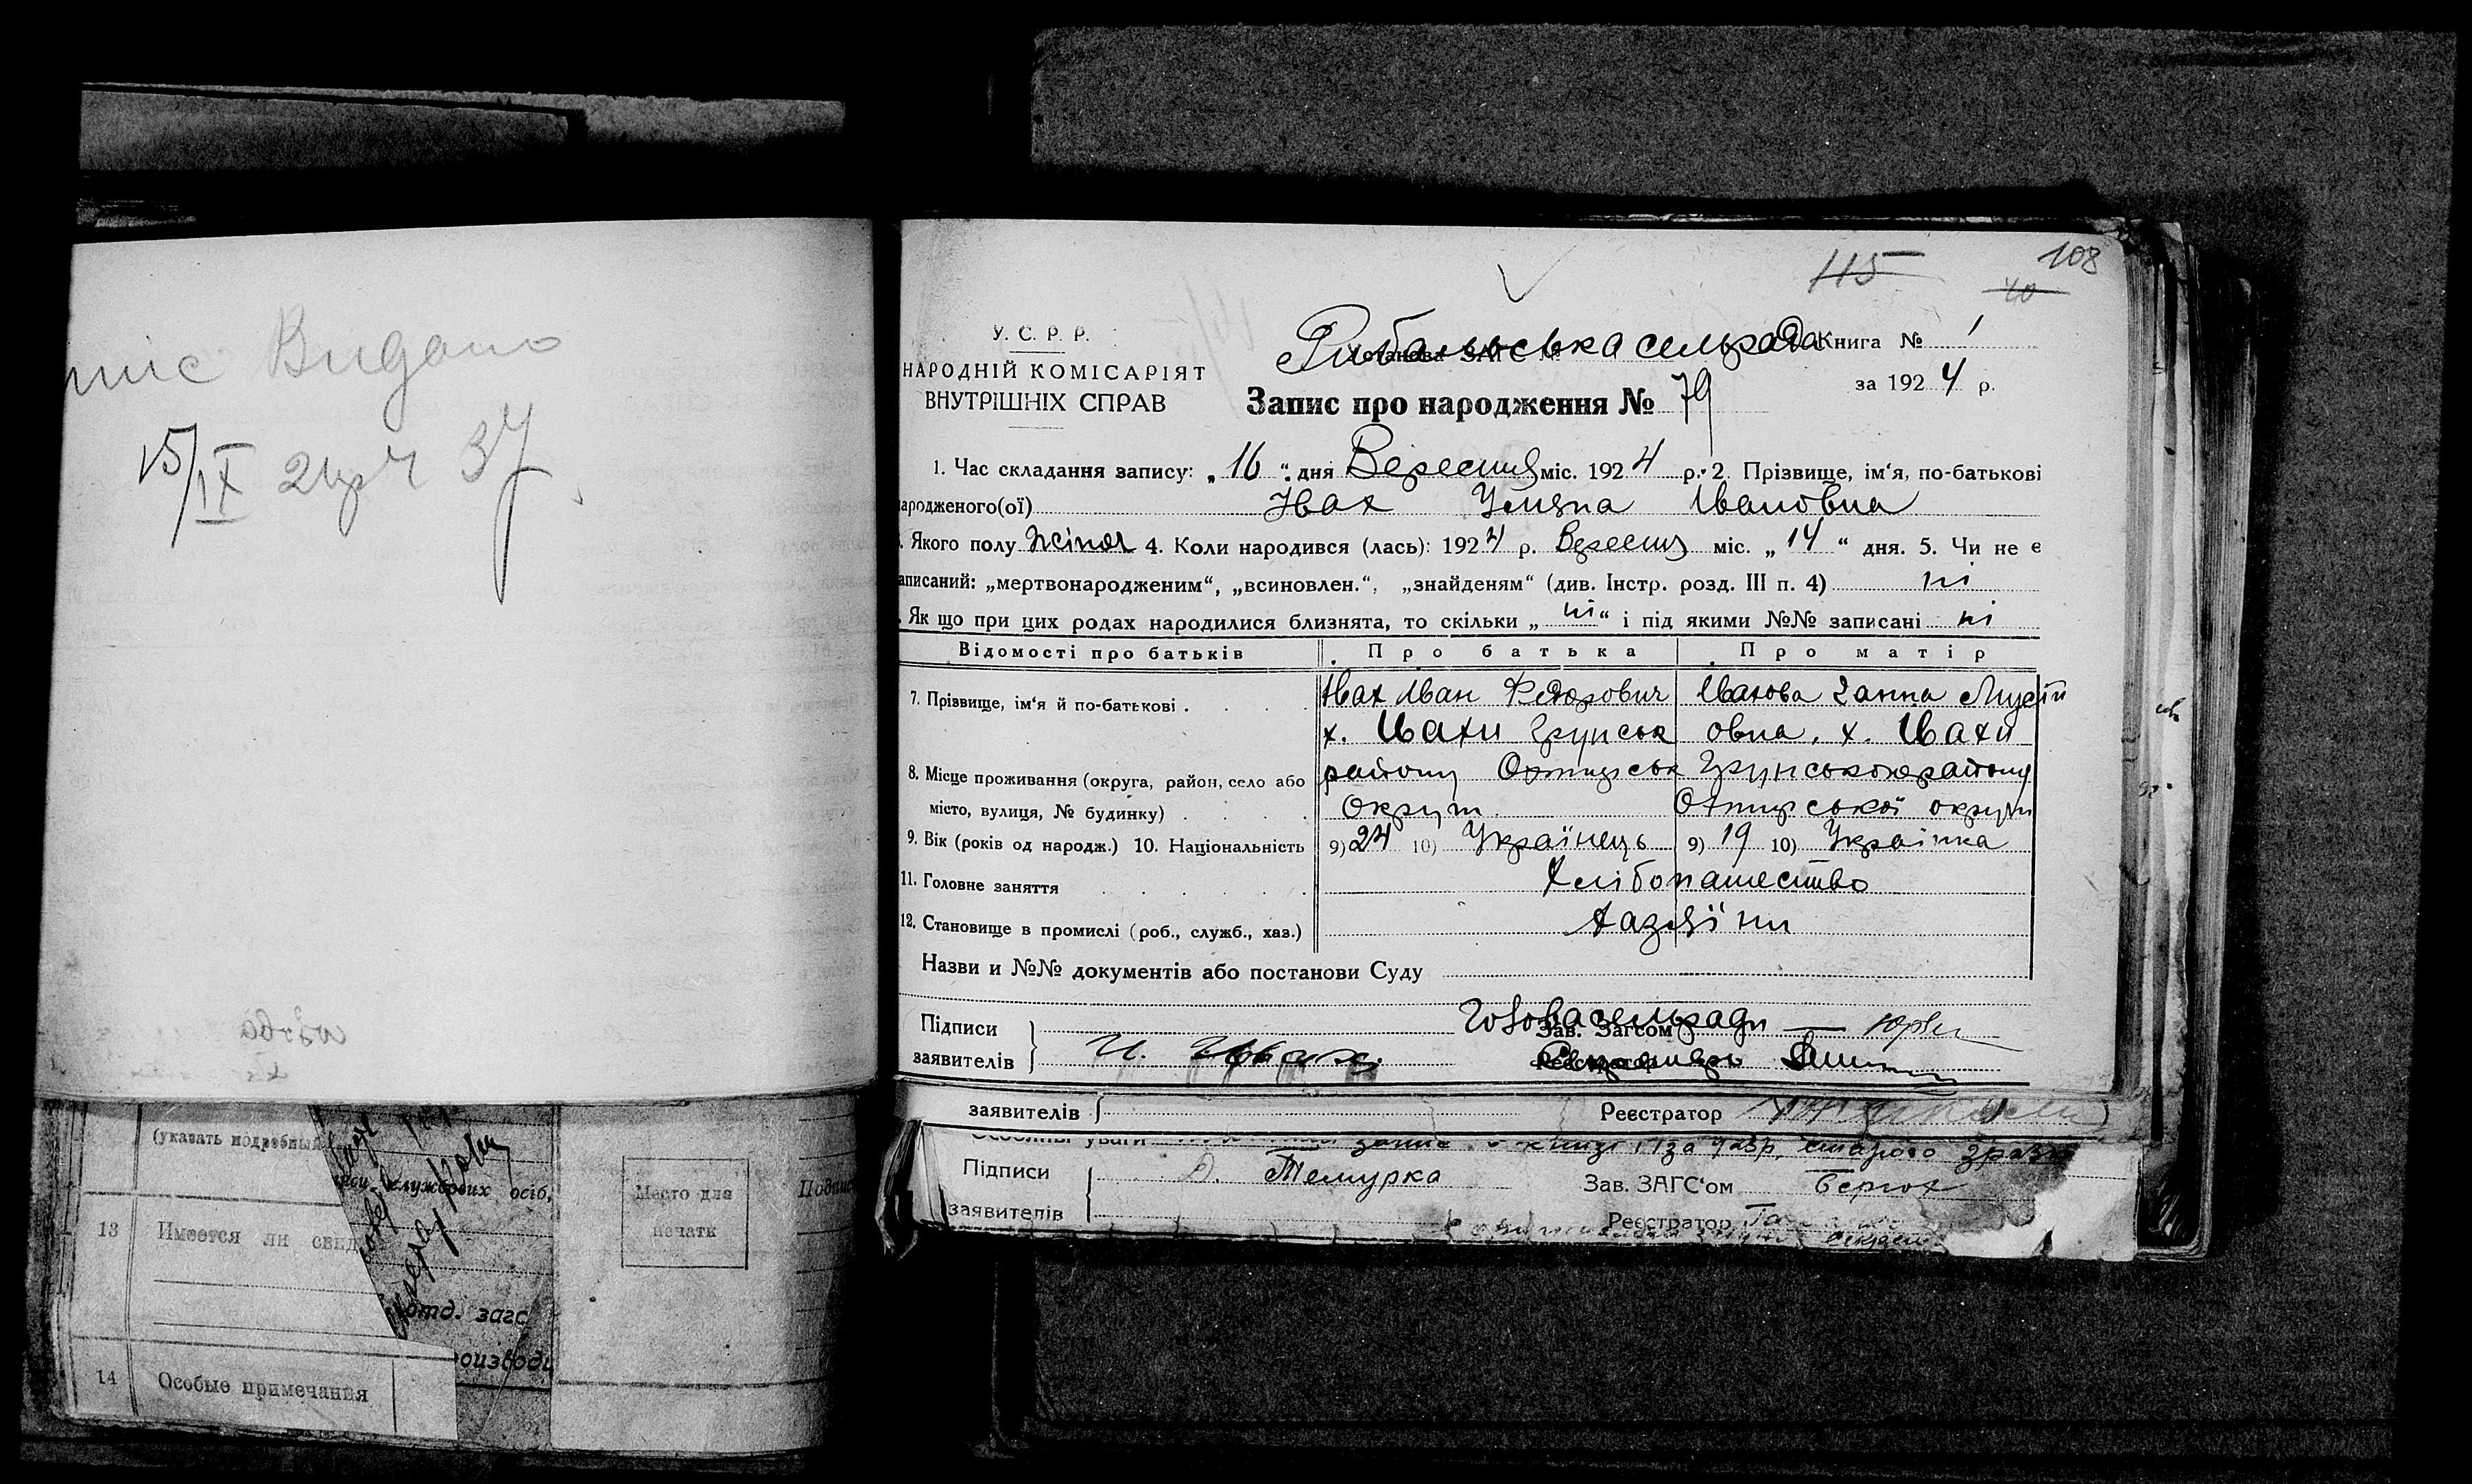 Видано
15/IX 24р ч 37
(указать подробный
службових осіб,
13 Имеется ли
отд. загс
14 Особые примечания
Место для
печати
115
108
40
У. С. Р. Р.
НАРОДНІЙ КОМІСАРІЯТ
ВНУТРІШНІХ СПРАВ
Рибальська сельрада Книга № 1
за 1924 р.
Запис про народження № 79
1. Час складання запису: „16“ дня Вересня міс. 1924 р. 2. Прізвище, ім‘я, по-батькові
ародженого(ої) Івах Уляна Івановна
. Якого полу жіноч 4. Коли народився (лась): 1924 р. Вересня міс. „14“ дня. 5. Чи не є
аписаний: „мертвонародженим“, „всиновлен.“, „знайденям“ (див. Інстр. розд. III п. 4) ні
. Як що при цих родах народилися близнята, то скільки „ні“ і під якими №№ записані ні
Відомості про батьків Про батька Про матір
7. Прізвище, ім‘я й по-батькові . Івах Іван Федорович Івахова Ганна Мусій
х. Івахи Грунськ овна, х. Івахи
8. Місце проживання (округа, район, село або району Охтирськ Грунського району
місто, вулиця, № будинку) Округи Охтирської округи
9. Вік (років од народж.) 10. Національність 9) 24 10) Українець 9) 19 10) Українка
11. Головне заняття Хлібопашество
12. Становище в промислі (роб., служб., хаз.) хазяїни
Назви и №№ документів або постанови Суду
Підписи Голова сельради
Зав. Загсом
заявителів И. Ивах Секретарь
Реєстратор
заявителів Реєстратор
за 1923р. старого
Підписи Темурка Зав. ЗАГС‘ом
заявителів Реєстратор